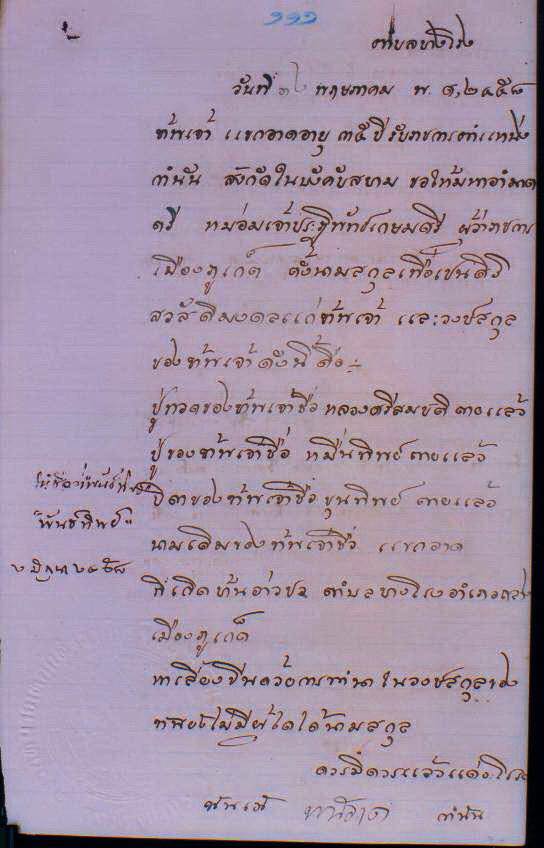 ๑๑๑
ตำบลบางโรง
วันที่ พฤษภาคม พ.ศ, ๒๔๕๘
ข้าพเจ้า แขกอาดอายุ ๓๕ ปี รับราชการตำแหน่ง
กำนัน สังกัดในบังคับสยาม ขอให้มหาอำมาต
ตรี หม่อมเจ้าประดิพัทธเกษมศรี ผู้ว่าราชการ
เมืองภูเก็ต ตั้งนามสกุลเพื่อเปนศิริ
สวัสดิมงคลแก่ข้าพเจ้า แลวงษสกุล
ของข้าพเจ้าดังนี้คือ:-
ปู่ทวดของข้าพเจ้าชื่อ หลวงศรีสมบัติ ตายแล้ว
ปู่ของข้าพเจ้าชื่อ หมื่นทิพย์ ตายแล้ว
บิดาของข้าพเจ้าชื่อ ขุนทิพย์ ตายแล้ว
นามเดิมของข้าพเจ้าชื่อ แขกอาด
ที่เกิดบ้านอ่าวปอ ตำบลบางโรง อำเภอถลาง
เมืองภูเก็ต
หาเลี้ยงชีพด้วยการทำนา ในวงษสกุลของ
ข้าพเจ้าไม่มีผู้ใดได้นามสกุล
ควรมิควรแล้วแต่จะโปรด
กำนัน
"พันธ์ทิพย์"
๒ มิถุนา ๒๔๕๘